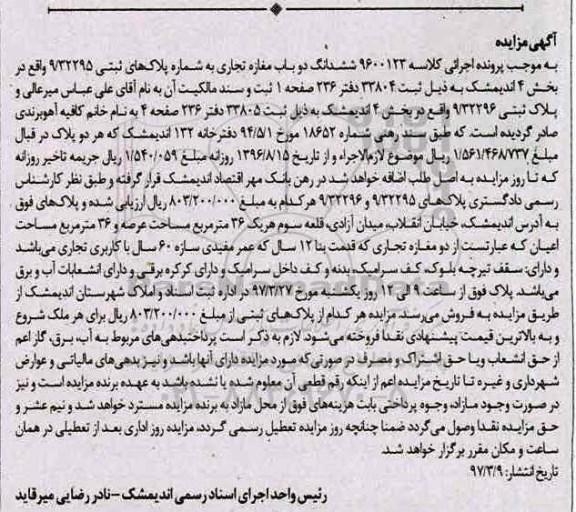 آگهی مزایده
به موجب پرونده اجرائی کلاسه ۹۶۰۰۱۲۳ ششدانگ دو باب مغازه تجاری به شماره پلاک‌های ثبتی ۹/۳۲۲۹۵ واقع در
بخش ۴ اندیمشک به ذیل ثبت ۳۳۸۰۴ دفتر ۲۳۶ صفحه ۱ ثبت و سند مالکیت آن به نام آقای علی عباس میرعالی و
پلاک ثبتی ۹/۳۲۲۹۶ واقع در بخش ۴ اندیمشک به ذیل ثبت ۳۳۸۰۵ دفتر ۲۳۶ صفحه ۴ به نام خانم کافیه آهوبرندی
صادر گردیده است. که طبق سند رهنی شماره ۱۸۶۵۲ مورخ ۹۴/۵/۱ دفترخانه ۱۳۲ اندیمشک که هر دو پلاک در قبال
مبلغ ۱/۵۶۱/۴۶۸/۷۳۷ ریال موضوع لازم‌الاجراء و از تاریخ ۱۳۹۶/۸/۱۵ روزانه مبلغ ۱/۵۴۰/۰۵۹ ریال جریمه تاخیر روزانه
که تا روز مزایده به اصل طلب اضافه خواهد شد در رهن بانک مهر اقتصاد اندیمشک قرار گرفته و طبق نظر کارشناس
رسمی دادگستری پلاک‌های ۹/۳۲۲۹۵ و ۹/۳۲۲۹۶ هرکدام به مبلغ ۸۰۳/۲۰۰/۰۰۰ ریال ارزیابی شده و پلاک‌های فوق
به آدرس اندیمشک، خیابان انقلاب، میدان آزادی، قلعه سوم هریک ۳۶ مترمربع مساحت عرصه و ۳۶ مترمربع مساحت
اعیان که عبارتست از دو مغازه تجاری که قدمت بنا ۱۲ سال که عمر مفیدی سازه ۶۰ سال با کاربری تجاری می‌باشد
و دارای: سقف تیرچه بلوک، کف سرامیک، بدنه و کف داخل سرامیک و دارای کرکره برقی و دارای انشعابات آب و برق
می‌باشد. پلاک فوق از ساعت ۹ الی ۱۲ روز یکشنبه مورخ ۹۷/۳/۲۷ در اداره ثبت اسناد و املاک شهرستان اندیمشک از
طریق مزایده به فروش می‌رسد. مزایده هر کدام از پلاک‌های ثبتی از مبلغ ۸۰۳/۲۰۰/۰۰۰ ریال برای هر ملک شروع
و به بالاترین قیمت پیشنهادی نقداً فروخته می‌شود. لازم به ذکر است پرداختبدهی‌های مربوط به آب، برق، گاز اعم
از حق انشعاب ویا حق اشتراک و مصرف در صورتی که مورد مزایده دارای آنها باشد و نیز بدهی‌های مالیاتی و عوارض
شهرداری و غیره تا تاریخ مزایده اعم از اینکه رقم قطعی آن معلوم شده یا نشده باشد به عهده برنده مزایده است و نیز
در صورت وجود مازاد، وجوه پرداختی بابت هزینه‌های فوق از محل مازاد به برنده مزایده مسترد خواهد شد و نیم عشر و
حق مزایده نقداً وصول می‌گردد ضمناً چنانچه روز مزایده تعطیل رسمی گردد، مزایده روز اداری بعد از تعطیلی در همان
ساعت و مکان مقرر برگزار خواهد شد.
تاریخ انتشار: ۹۷/۳/۹
رئیس واحد اجرای اسناد رسمی اندیمشک – نادر رضایی میرقاید